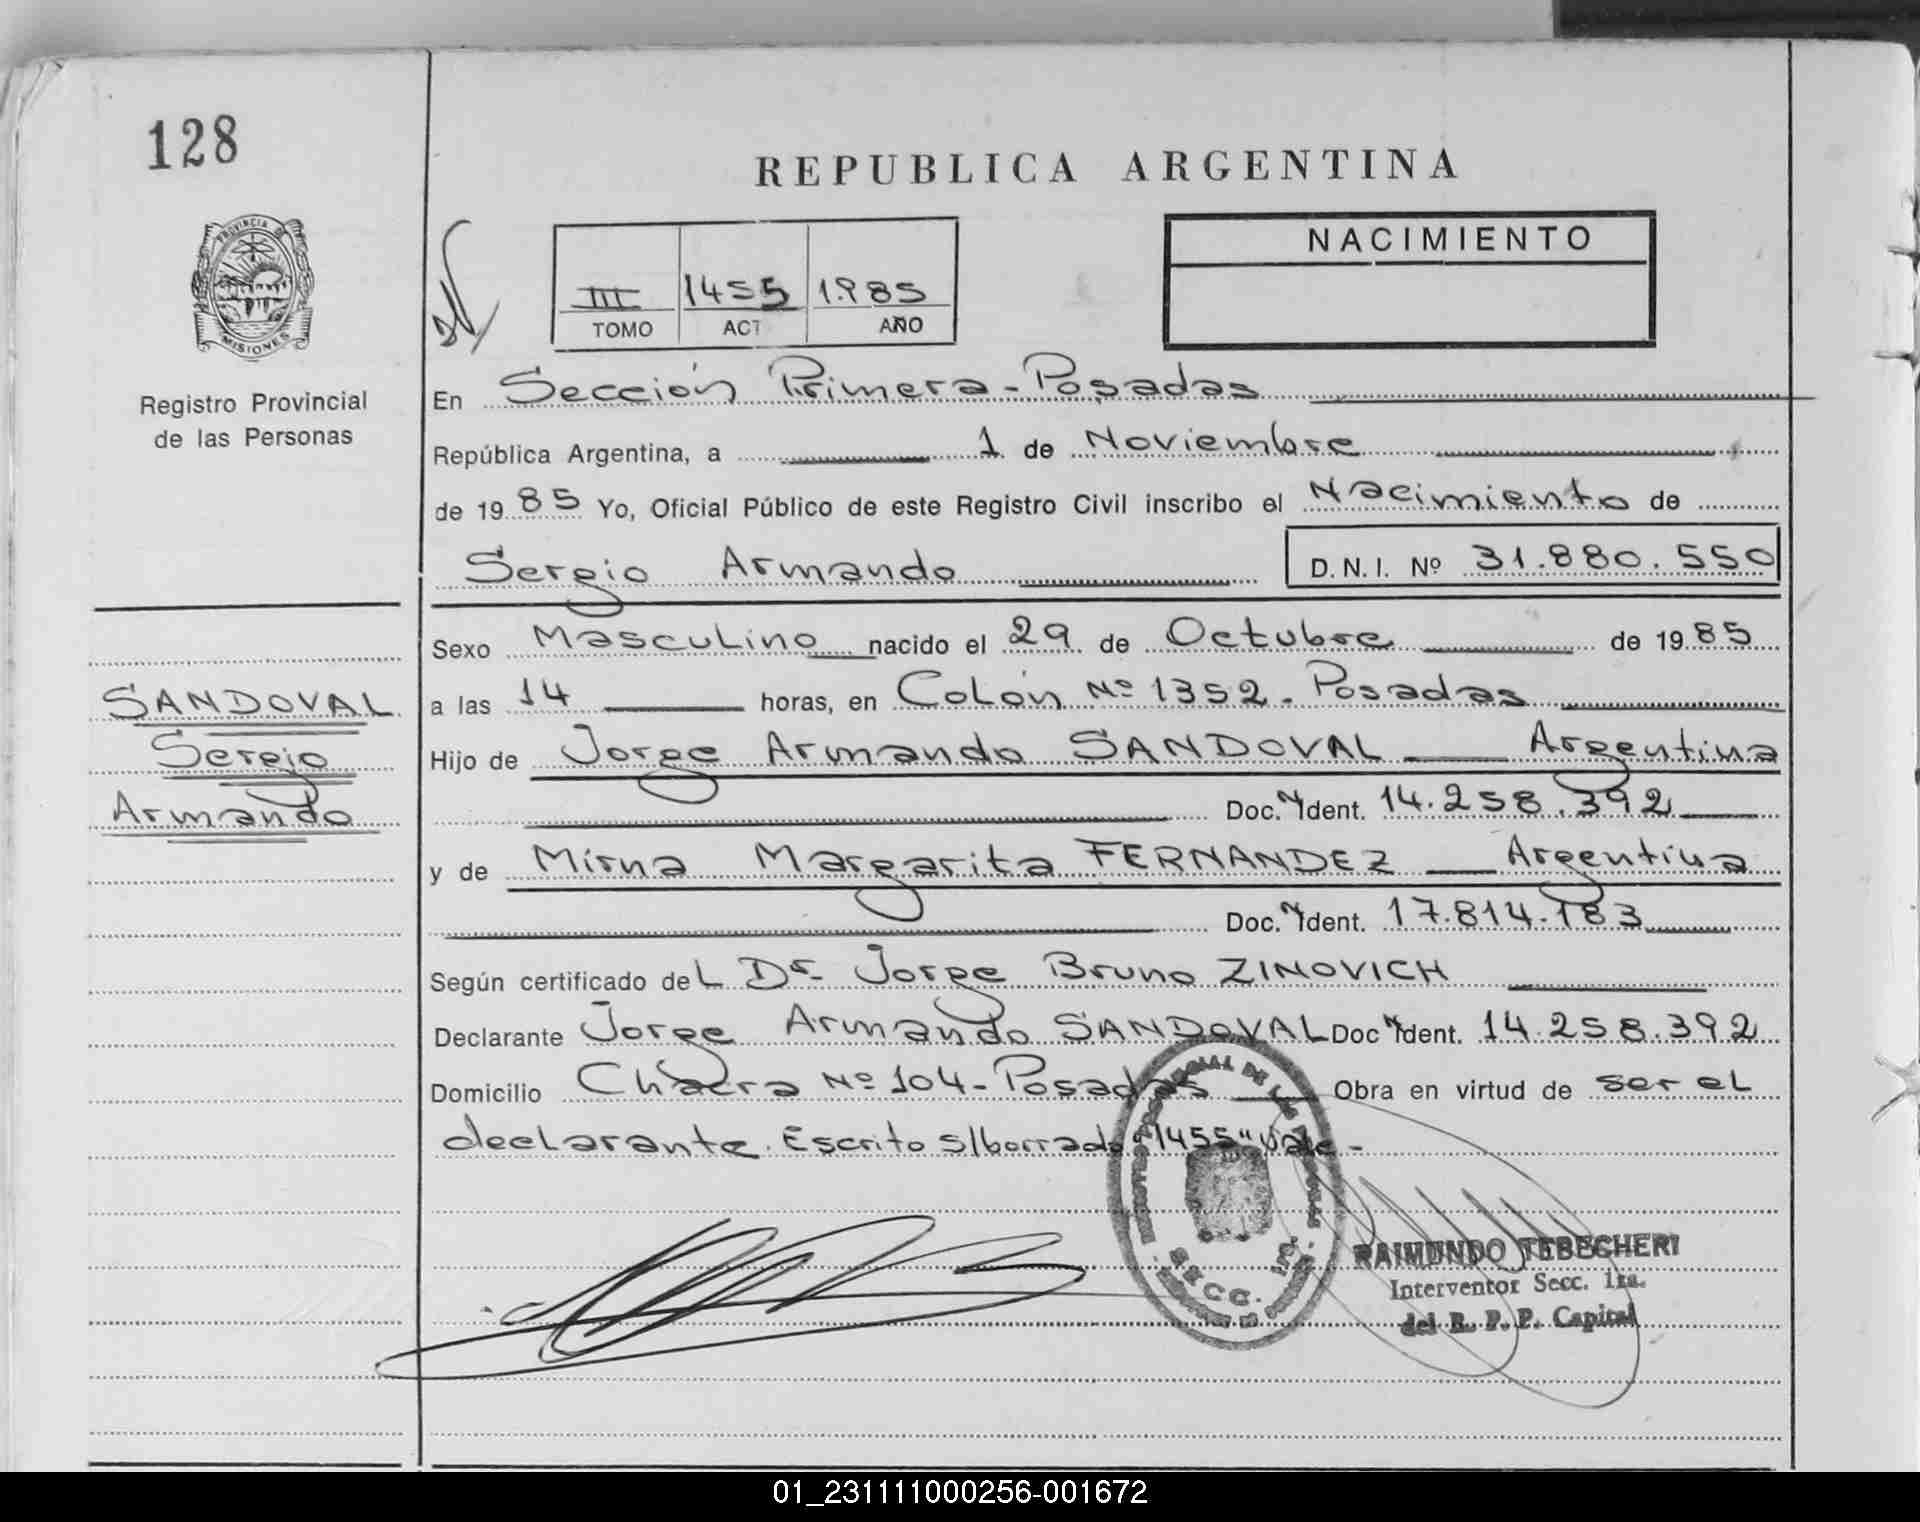 128
REPUBLICA ARGENTINA
PROVINCIA DE
MISIONES
Registro Provincial
de las Personas
III 1455 1.985
TOMO ACT AÑO
NACIMIENTO
En Sección Primera - Posadas
República Argentina, a 1 de Noviembre
de 1985 Yo, Oficial Público de este Registro Civil inscribo el Nacimiento de
Sergio Armando D.N.I. Nº 31.880.550
Sexo Masculino nacido el 29 de Octubre de 1985
a las 14 horas, en Colón Nº 1352 - Posadas
Hijo de Jorge Armando SANDOVAL Argentina
Doc. Ident. 14.258.392
y de Mirna Margarita FERNANDEZ Argentina
Doc. Ident. 17.814.183
Según certificado del Dr. Jorge Bruno ZINOVICH
Declarante Jorge Armando SANDOVAL Doc Ident. 14.258.392
Domicilio Chacra Nº 104 - Posadas Obra en virtud de ser el
declarante. Escrito s/borrado "1455" Vale -
SANDOVAL
Sergio
Armando
SECC. 1ra.
RAIMUNDO TEBECHERI
Interventor Secc. 1ra.
del R. P. P. Capital
01_231111000256-001672